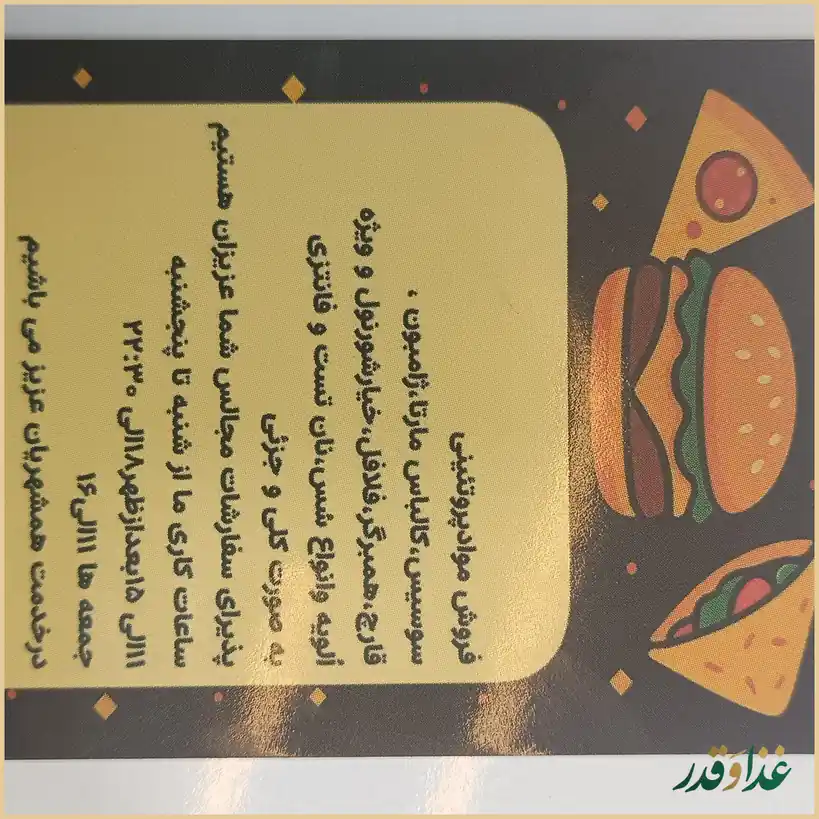 فروش موادپروتئینی
سوسیس،کالباس مارتا،ژامبون ،
قارچ،همبرگر،فلافل،خیارشورنول و ویژه
ألویه وانواع سس،نان تست و فانتزی
به صورت کلی و جزئی
پذیرای سفارشات مجالس شما عزیزان هستیم
ساعات کاری ما از شنبه تا پنجشنبه
۱۱الی ۱۵بعدازظهر۱۸الی ۲۲:۳۰
جمعه ها ۱۱الی۱۶
درخدمت همشهریان عزیز می باشیم
غذاوقدر